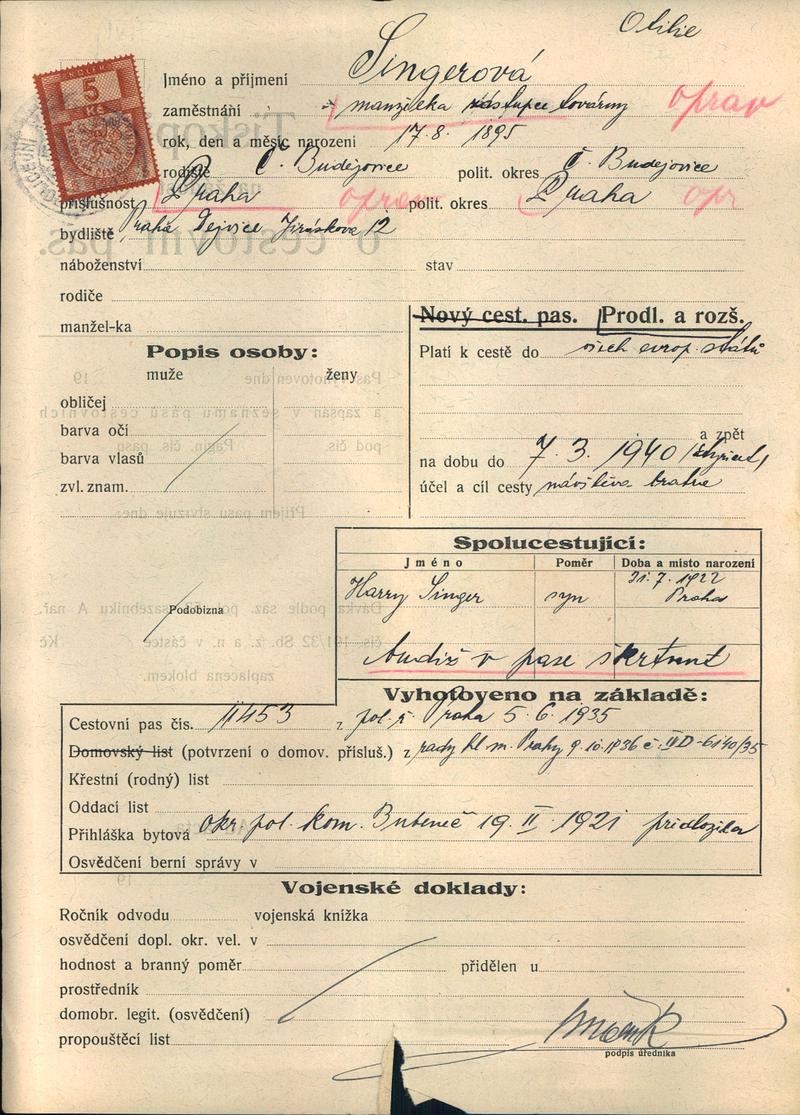 Otilie
KOLEK
5
Kč
Jméno a příjmení Singerová
zaměstnání manželka zástupce továrny oprav
rok, den a měsíc narození 17. 8. 1895
rodiště Č. Budějovice polit. okres Č. Budějovice
příslušnost Praha oprav polit. okres Praha opr
bydliště Praha Dejvice Jiráskova 12
náboženství stav
rodiče
manžel-ka
Nový cest. pas. Prodl. a rozš.
Popis osoby:
muže ženy
obličej
barva očí
barva vlasů
zvl. znam.
Platí k cestě do všech evrop. států
a zpět
na dobu do 7. 3. 1940
účel a cíl cesty návštěva bratra
Podobizna
Spolucestující:
Jméno Poměr Doba a místo narození
Harry Singer syn 31. 7. 1922
Praha
v pase škrtnut
Vyhotoveno na základě:
Cestovní pas čís. 11453 z pol. ř. Praha 5. 6. 1935
Domovský list (potvrzení o domov. přísluš.) z rady hl. m. Prahy 9. 10. 1936 č. IID-6140/35
Křestní (rodný) list
Oddací list
Přihláška bytová okr. pol. kom. Bubeneč 19. II. 1921 předložila
Osvědčení berní správy v
Vojenské doklady:
Ročník odvodu vojenská knížka
osvědčení dopl. okr. vel. v
hodnost a branný poměr přidělen u
prostředník
domobr. legit. (osvědčení)
propouštěcí list
podpis úředníka